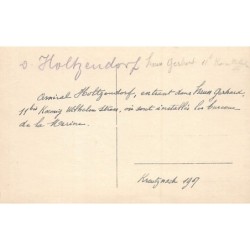 v Holtzendorf Haus Gerhard
Amiral Holtzendorf, entrant dans Haus Gerhard,
11bis Kaiser Wilhelm Strass, où sont installés les bureaux
de la Marine.
Kreutznach 1917